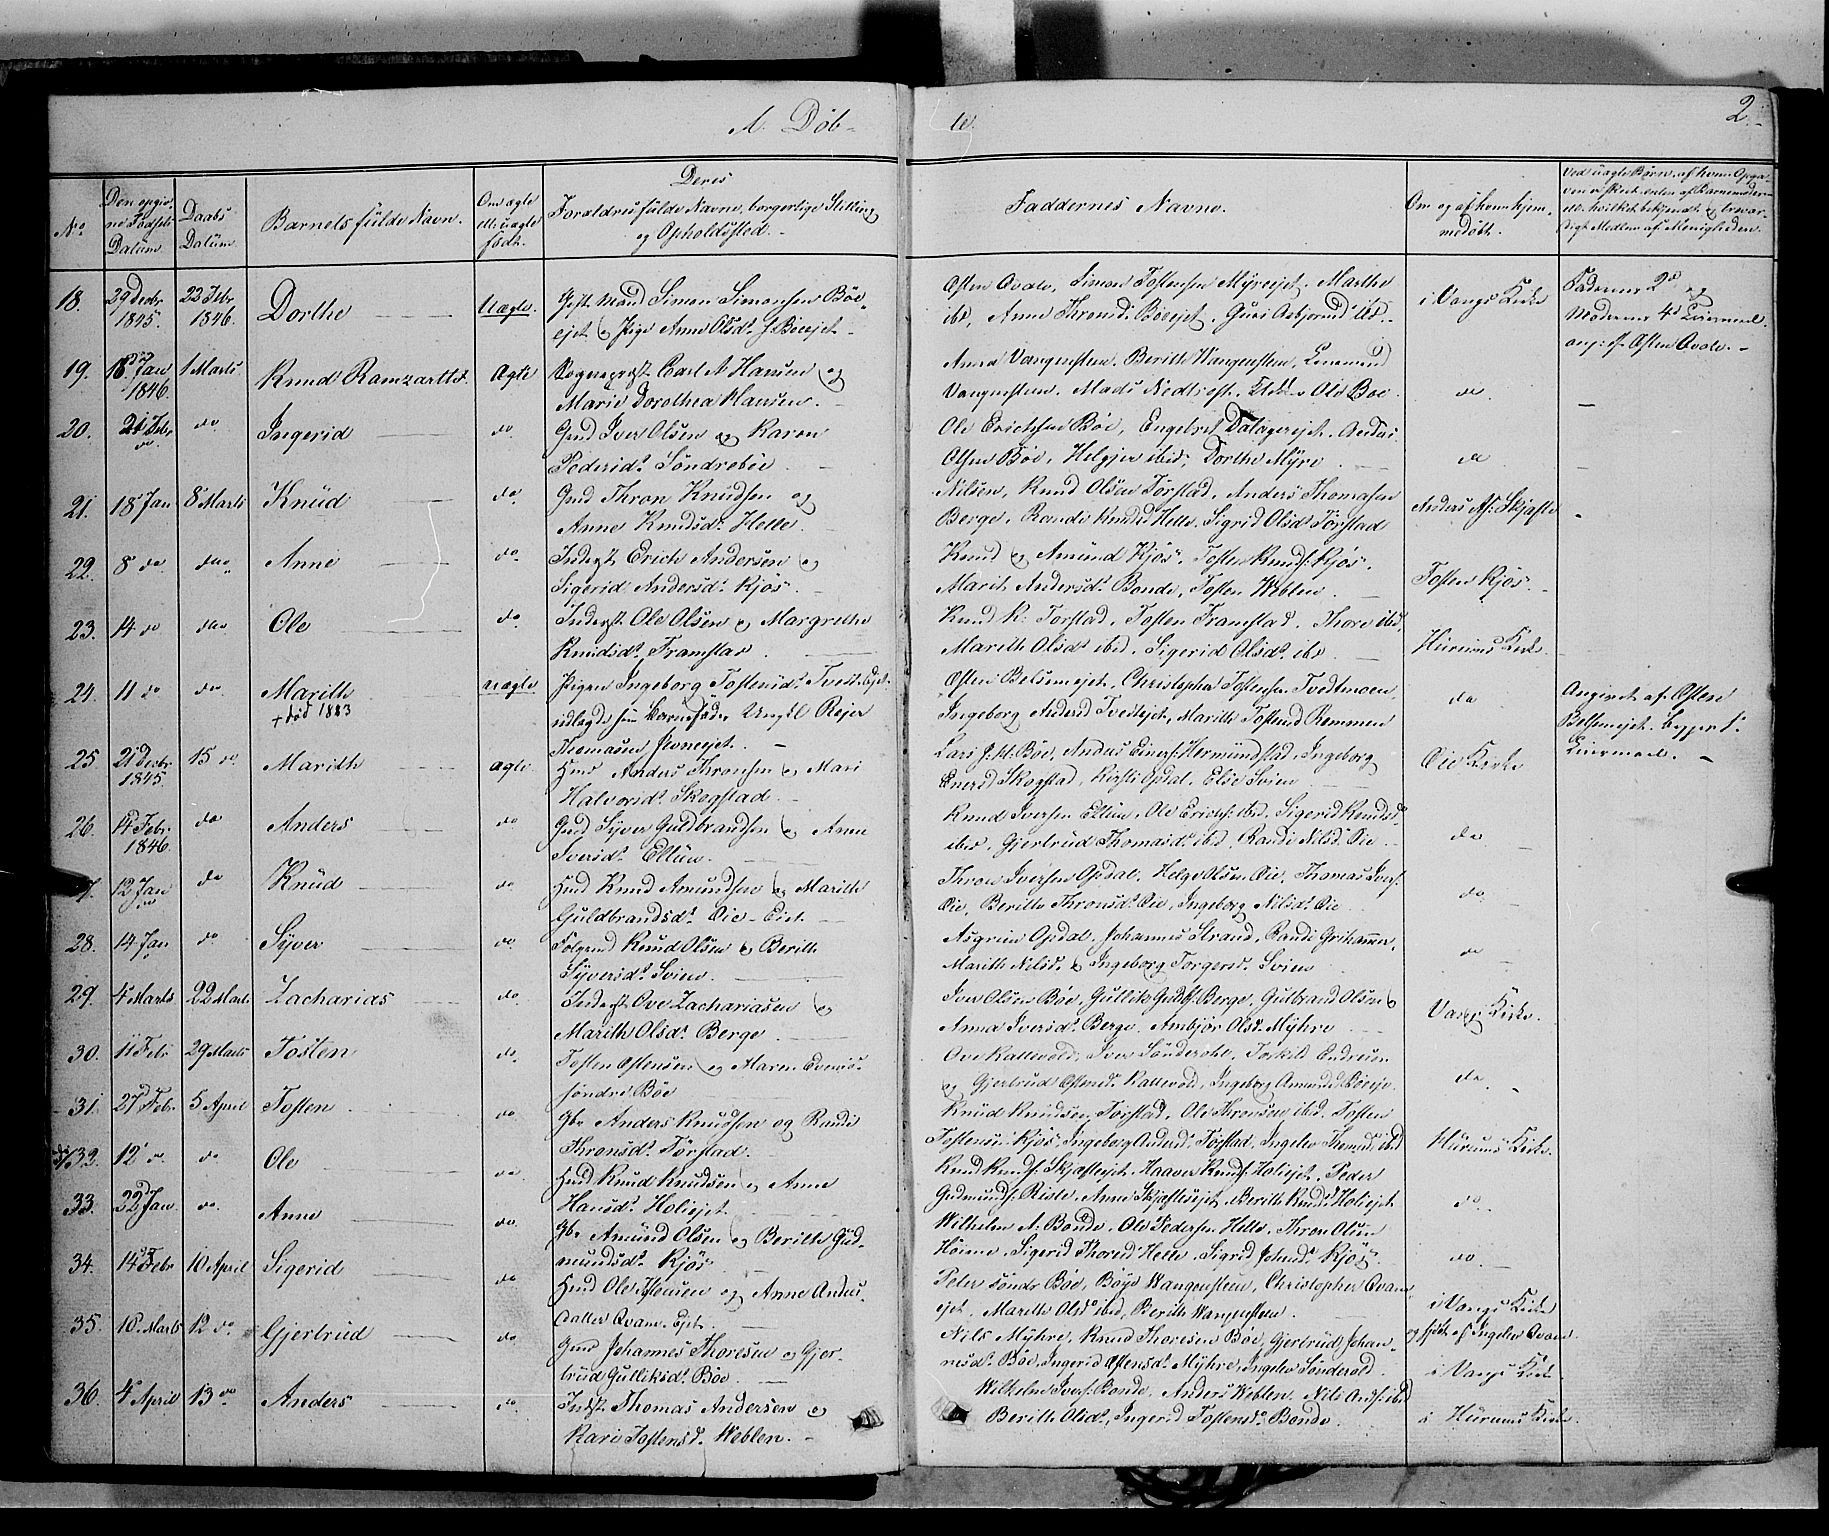 A. Døb-
te.
2.
No
Den opgivne Fødsels Datum.
Daabs Datum
Barnets fulde Navn.
Om ægte eller uægte født.
Deres Forældres fulde Navne, borgerlige Stilling og Opholdssted.
Faddernes Navne.
Om og af hvem hjemmedøbt.
18. 29 Decbr 1845. 22 Febr 1846. Dorthe Uægte. Gift Mand Simon Simonsen Böe-
ejet og Pige Anne Olsdr Böeejet
Østen Qvale, Simon Tostensen Myreejet, Marthe
ibd, Anne Throndsd. Böeejet, Guri Asbjørnsd ibd
i Vangs Kirke
Faderens 2d og
Moderens 4d Leiermaal
ang: af Østen Qvale.
19. 18 Jan 1846. 1 Marts Knud Ramzartho Ægte Sognepræst Carl A Hansen og
Marie Dorothea Hansen.
Anna Vangensteen. Berith Wangensteen,
Vangensteen. Mads Ole Böe.
do
20. 21 Febr do do Ingerid do Gmd Iver Olsen og Karen
Pedersdr Söndreböe
Ole Erichsen Böe, Engebret Dalagerejet,
Olsen Böe, Helgjer ibid, Dorthe Myre
do
21. 18 Jan 8 Marts Knüd do Gmd Thron Knudsen og
Anne Knudsdr Helle.
Nilsen, Knud Olsen Törstad, Anders Thomasen
Berge, Randi Knudsd Helle, Sigrid Olsd Törstad
Anders As: Skjefte
22. 8 do do Anne do Inderst Erich Andersen og
Sigerid Andersdr Kjös.
Knud og Amund Kjös, Tosten Knuds: Kjös,
Marit Andersdr Bonde, Tosten Weblen.
Tosten Kjös.
23. 14 do do Ole do Inderst Ole Olsen og Margrethe
Knudsdr Framstad.
Knud K: Torstad, Tosten Framstad, Thore ibd,
Marith Olsdr ibid, Sigerid Olsdr ibd.
Hurums Kirke
24. 11 do do Marith uægte Pigen Ingeborg Tostensdr Tvedt-Ejet
+ död 1883
udlagde som Barnefader Ungkl Rejer
Thomasen Jevneejet.
Østen Belsemejet, Christopher Tostensen Tvedtmoen,
Ingeborg Andersd Tvedtejet, Marith Tostensd Remmen
do
Angivet af Østen
Belsemejet. begges 1ste
Leiermaal.
25 21 Decbr 1845. 15 do Marith ægte. Hmd Anders Thronsen og Mari
Halvorsdr Skogstad.
Lars J. Böe, Anders Hermundstad, Ingeborg
Skogstad, Kirsti Opdal, Elise Svien
Öie Kirke
26. 14 Febr 1846. do Anders do Gmd Syver Guldbrandsen og Anne
Iversdr Ellün.
Knud Iversen Ellün, Ole Erichs: ibd, Sigerid Knudsd
ibid, Gjertrud Thomasdr ibd, Randi Nilsdr Öie
do
7. 12 Jan do Knüd do Hmd Knud Amundsen og Marith
Guldbrandsdr Öie-Eiet.
Thron Iversen Opdal, Helge Olsen Öie, Thomas Ivers:
Öie, Berith Thronsdr Öie, Ingeborg Nilsdr Öie
do
28. 14 Jan do Syver do Knud Olsen og Berith
Syversdr Svien
Asgrim Opdal, Johannes Strand, Randi Grihamer,
Marith Nilsd. & Ingeborg Torgersd. Svien
do
29. 4 Marts 22 Marts Zacharias do Inderst Ove Zachariasen og
Marith Olsdr Berge.
Iver Olsen Böe, Gullik Berge, Gulbrand Olsen &
Anna Iversdr Berge. Ambjör Olsd. Myhre
Vangs Kirke.
30. 11 Febr 29 Marts Tosten do Tosten Ostensen og Maren
söndre Böe
Ove Kattevold, Iver Sönderohe, Torkild Endresen
og Gjertrud Ostensdr Kattevold, Ingeborg Amundsd Böeeje
do
31. 27 Febr. 5 April Tosten do Gbr Anders Knudsen og Randi
Thronsdr Törstad.
Knüd Knudsen Törstad, Ole Thronsen ibid. Tosten
Tostensen Kjös, Ingeborg Andersd Törstad, Ingelev Thronsd ibid
Hurums Kirke.
32. 12 do do Ole do Hmd Knud Knudsen og Anne
Hansdr Holiejet
Knud Knuds: Skjefteejet, Haaver Knuds: Holiejet, Peder
Gudmunds: Risle, Anne Skjefteejet, Berith Knudsd Holiejet
do
33. 22 Jan do. Anne do Gbr Amund Olsen og Berith Gud-
mundsdr Kjös
Wilhelm A: Bonde, Ole Pedersen Helle, Thron Olsen
Höime, Sigerid Thoresd Helle, Sigrid Johnsdr Kjös
do
34. 14 Febr 10 April Sigerid do Hmd Ole og Anne Anders-
datter Qvam-Ejet
Peter söndr Böe, Böye Wangensteen, Christopher Qvam-
ejet, Marith Olsdr ibid, Berith Wangensteen
i Vangs Kirke
og hjdbt af Ingelev Qvam
35. 16 Marts 12 do Gjertrud do Gmd Johannes Thoresen og Gjer-
trud Gulliksdr Böe.
Nils Myhre, Knud Thoresen Böe, Gjertrud Johan-
nesdr Böe, Ingerid Ostensdr Myhre, Ingelev Sönderold
i Vangs Kirke
36. 4 April 13 do Anders do Indst Thomas Andersen og
Kari Tostensd. Weblen.
Wilhelm Ivers: Bonde, Anders Weblen, Nils Ands: ibd
Berith Olsdr, Ingerid Tostensdr Bonde
i Hurums Kirke.